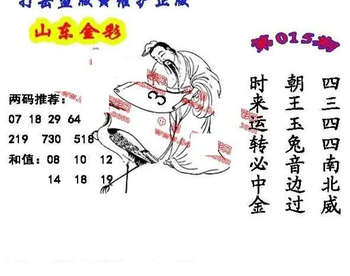 打击盗版 维护正版
山东金彩
第015期
两码推荐:
07 18 29 64
219 730 518
和值: 08 10 12
14 18 19
3
四三四四南北威
朝王玉兔音边过
时来运转必中金